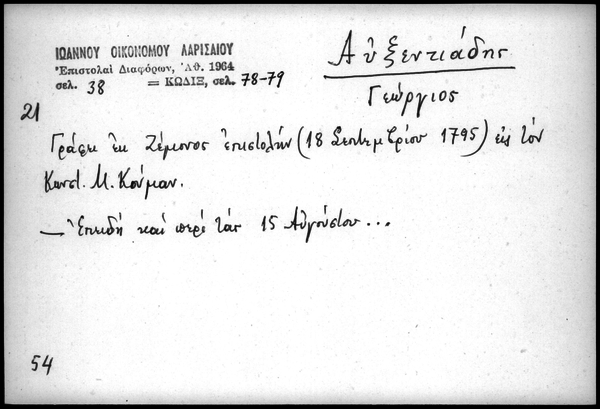 ΙΩΑΝΝΟΥ ΟΙΚΟΝΟΜΟΥ ΛΑΡΙΣΑΙΟΥ
Ἐπιστολαὶ Διαφόρων, Ἀθ. 1964
σελ. 38 = ΚΩΔΙΞ, σελ. 78-79
Αὐξεντιάδης
Γεώργιος
21
Γράφει ἐκ Ζέμονος ἐπιστολήν (18 Σεπτεμβρίου 1795) εἰς τόν
Κωνστ. Μ. Κούμαν.
— Ἐπειδή καί περί τάς 15 Αὐγούστου...
54